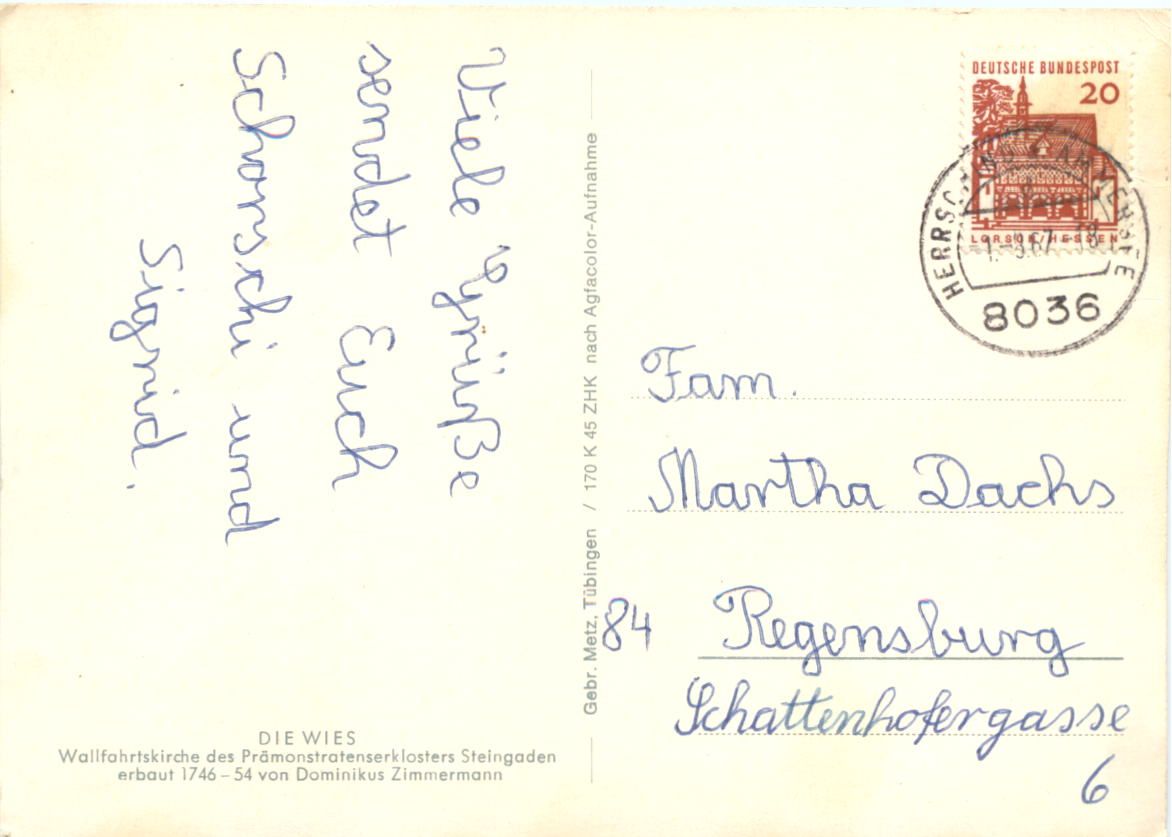 Viele Grüße
sendet Euch
Schorschi und
Sigrid.
DIE WIES
Wallfahrtskirche des Prämonstratenserklosters Steingaden
erbaut 1746 – 54 von Dominikus Zimmermann
Gebr. Metz, Tübingen / 170 K 45 ZHK nach Agfacolor-Aufnahme
DEUTSCHE BUNDESPOST
20
LORSCH HESSEN
HERRSCHING * AMMERSEE
-1.-9.67. 18
8036
Fam.
Martha Dachs
84 Regensburg
Schattenhofergasse
6